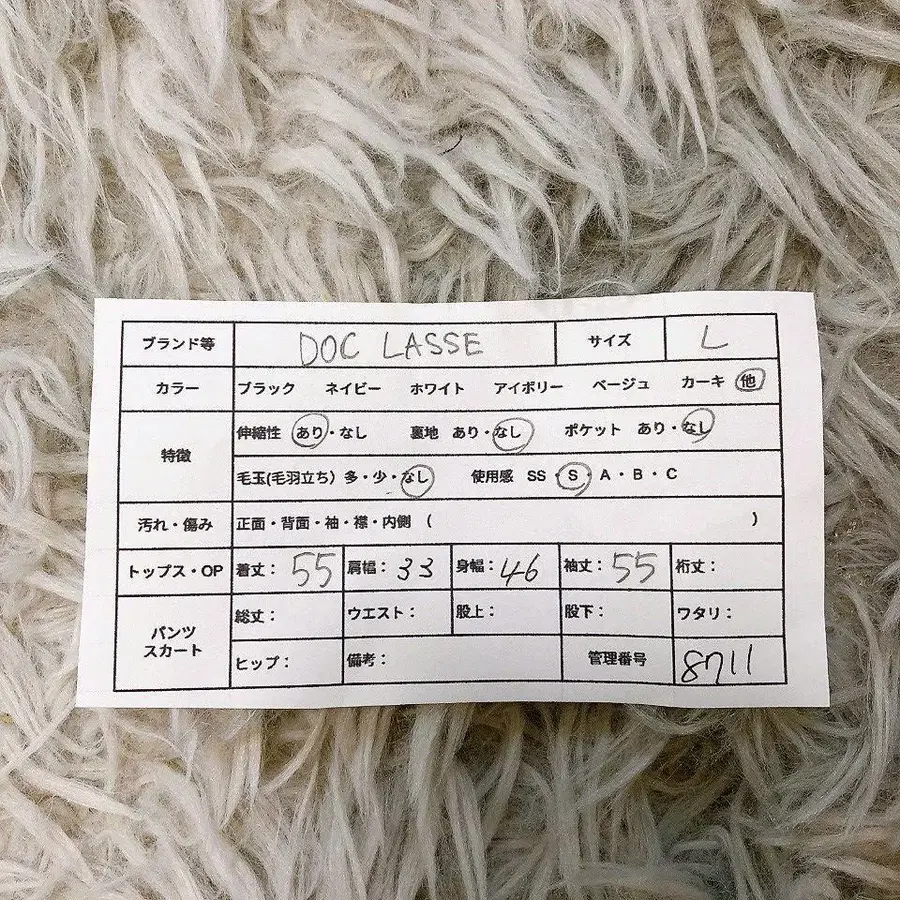 ブランド等 DOC LASSE サイズ L
カラー ブラック ネイビー ホワイト アイボリー ベージュ カーキ 他
特徴 伸縮性 あり・なし 裏地 あり・なし ポケット あり・なし
毛玉(毛羽立ち) 多・少・なし 使用感 SS・S・A・B・C
汚れ・傷み 正面・背面・袖・襟・内側 ( )
トップス・OP 着丈: 55 肩幅: 33 身幅: 46 袖丈: 55 裄丈:
パンツ スカート 総丈: ウエスト: 股上: 股下: ワタリ:
ヒップ: 備考: 管理番号 8711